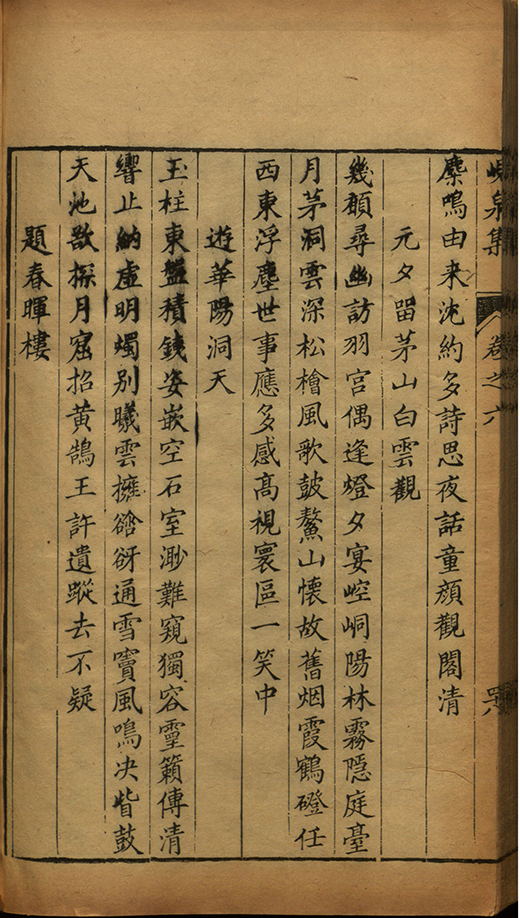 峴泉集 卷之六 罜
麋鳴由来沈約多詩思夜話童顔觀閣清
元夕留茅山白雲觀
幾頼尋幽訪羽宮偶逢燈夕宴崆峒陽林霧隱庭臺
月茅洞雲深松檜風歌皷鰲山懷故舊烟霞鶴磴任
西東浮塵世事應多感髙視寰區一笑中
遊華陽洞天
玉柱東盤積錢姿嵌空石室渺難窺獨容靈籟傳清
響止納虛明燭別曦雲擁谽谺通雪竇風鳴决眥鼓
天池欲探月窟招黄鵠王許遺蹤去不疑
題春暉樓